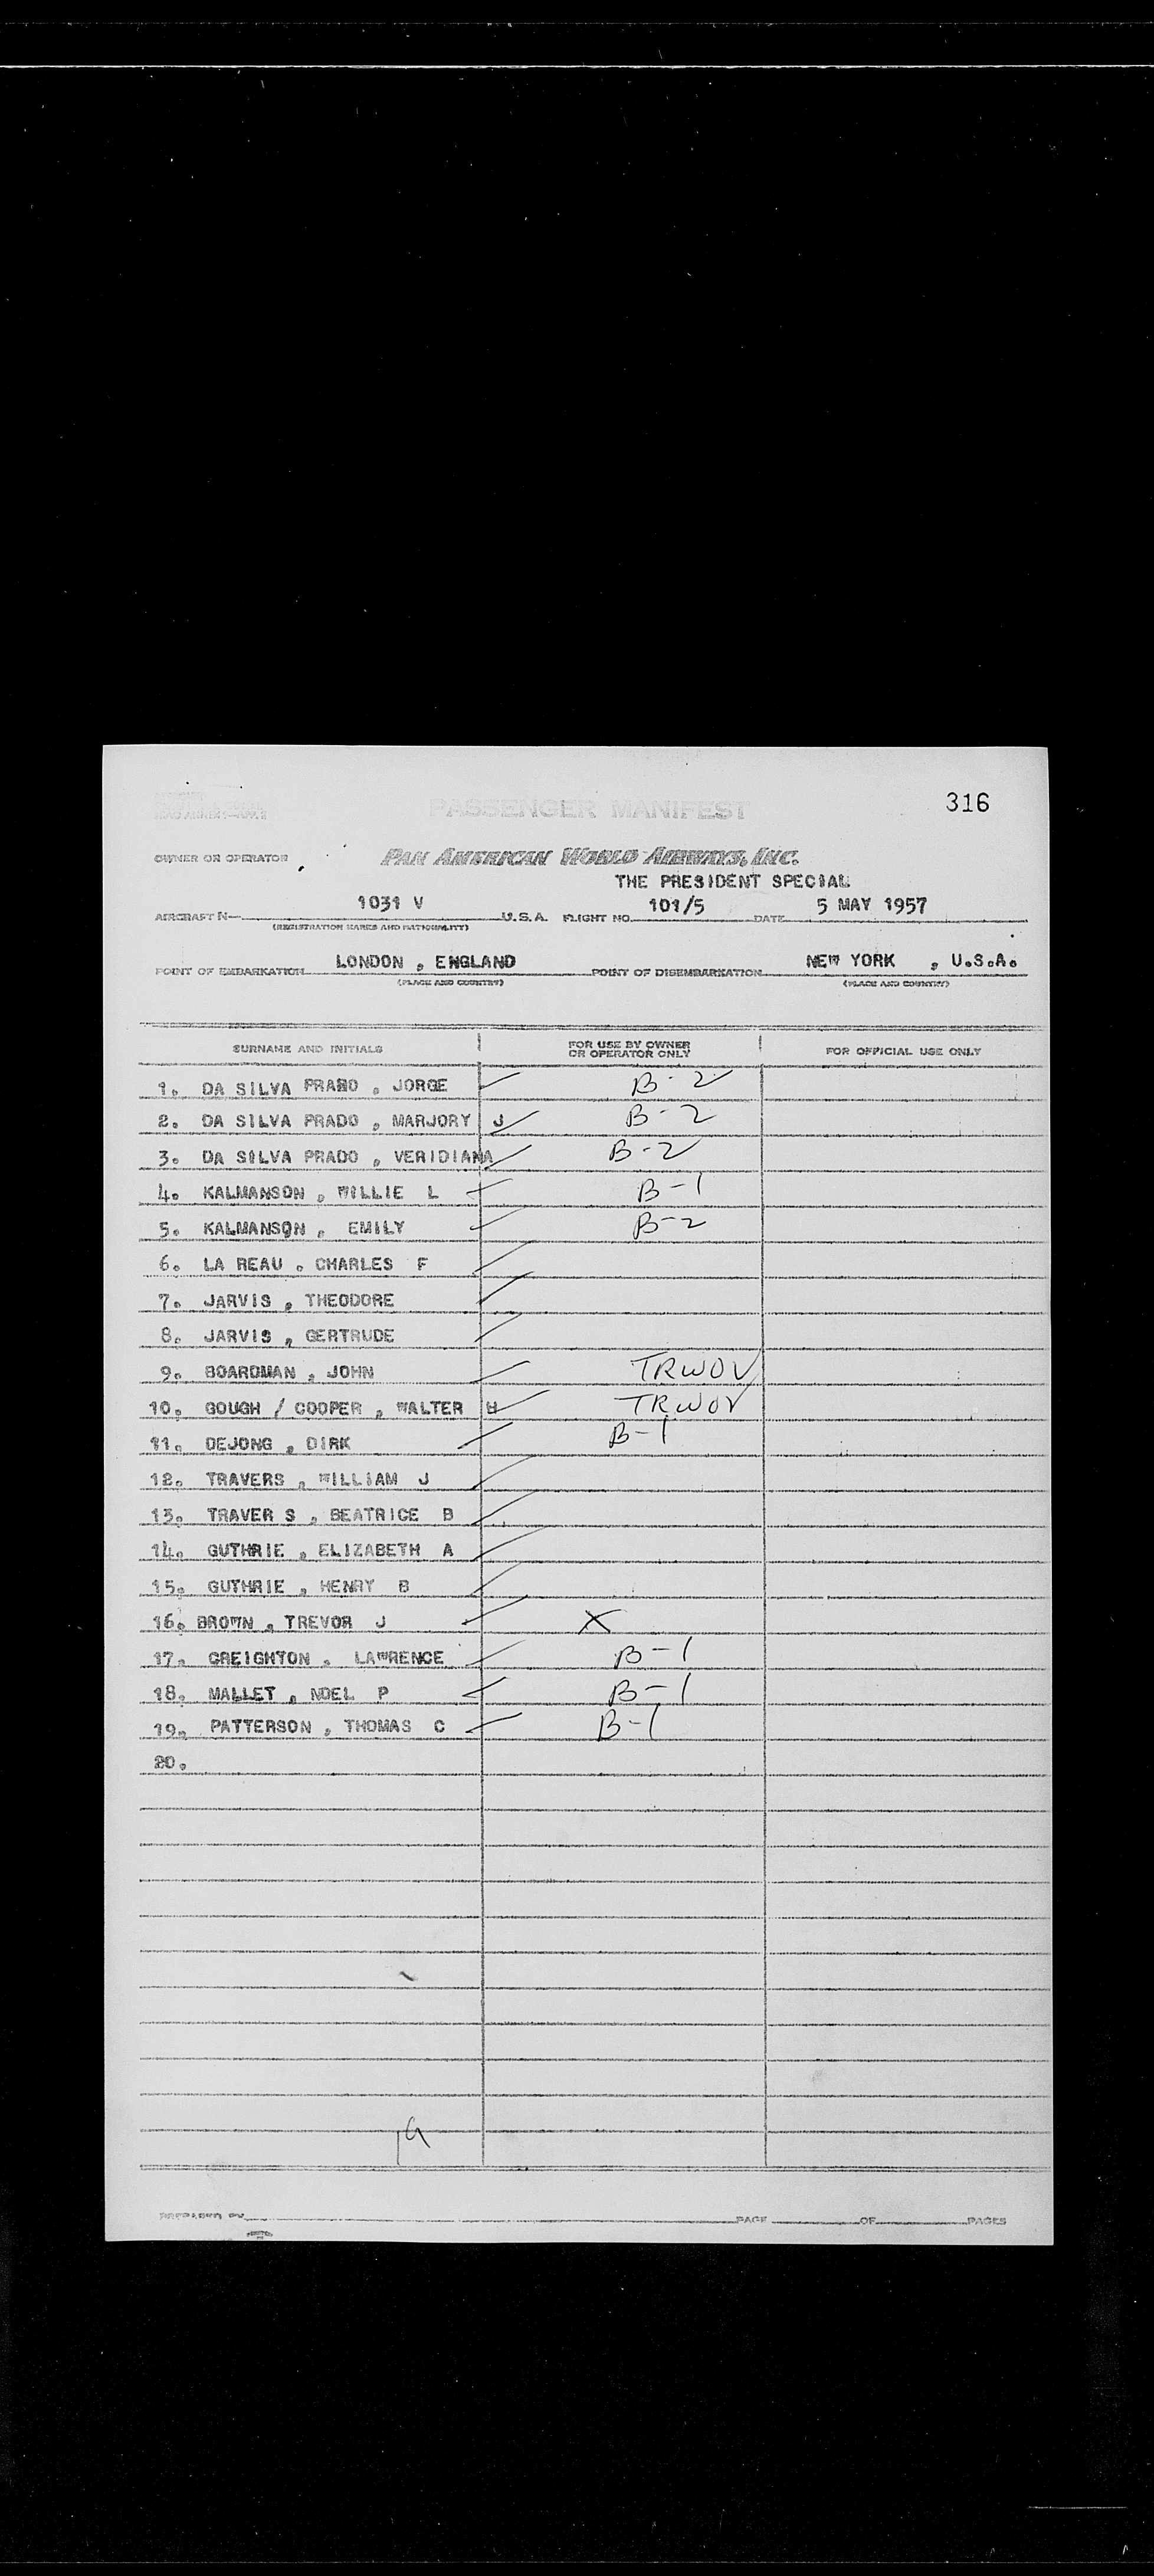 316
PASSENGER MANIFEST
OWNER OR OPERATOR PAN AMERICAN WORLD AIRWAYS, INC.
THE PRESIDENT SPECIAL
AIRCRAFT N— 1031 V U.S.A. FLIGHT NO. 101/5 DATE 5 MAY 1957
(REGISTRATION MARKS AND NATIONALITY)
POINT OF EMBARKATION LONDON , ENGLAND POINT OF DISEMBARKATION NEW YORK , U.S.A.
(PLACE AND COUNTRY) (PLACE AND COUNTRY)
SURNAME AND INITIALS FOR USE BY OWNER OR OPERATOR ONLY FOR OFFICIAL USE ONLY
1. DA SILVA PRADO , JORGE B-2
2. DA SILVA PRADO , MARJORY J B-2
3. DA SILVA PRADO , VERIDIANA B-2
4. KALMANSON , WILLIE L B-1
5. KALMANSON , EMILY B-2
6. LA REAU , CHARLES F
7. JARVIS , THEODORE
8. JARVIS , GERTRUDE
9. BOARDMAN , JOHN TRWOV
10. GOUGH / COOPER , WALTER H TRWOV
11. DEJONG , DIRK B-1
12. TRAVERS , WILLIAM J
13. TRAVER S , BEATRICE B
14. GUTHRIE , ELIZABETH A
15. GUTHRIE , HENRY B
16. BROWN , TREVOR J X
17. CREIGHTON , LAWRENCE B-1
18. MALLET , NOEL P B-1
19. PATTERSON , THOMAS C B-1
20.
19
PREPARED BY PAGE OF PAGES